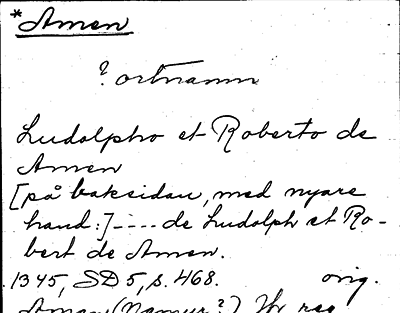 *Amen
? ortnamn
Ludolpho et Roberto de
Amen
[på baksidan, med nyare
hand:] ---- de Ludolph et Ro-
bert de Amen.
1345, SD 5, s. 468. orig.
(Namur?)